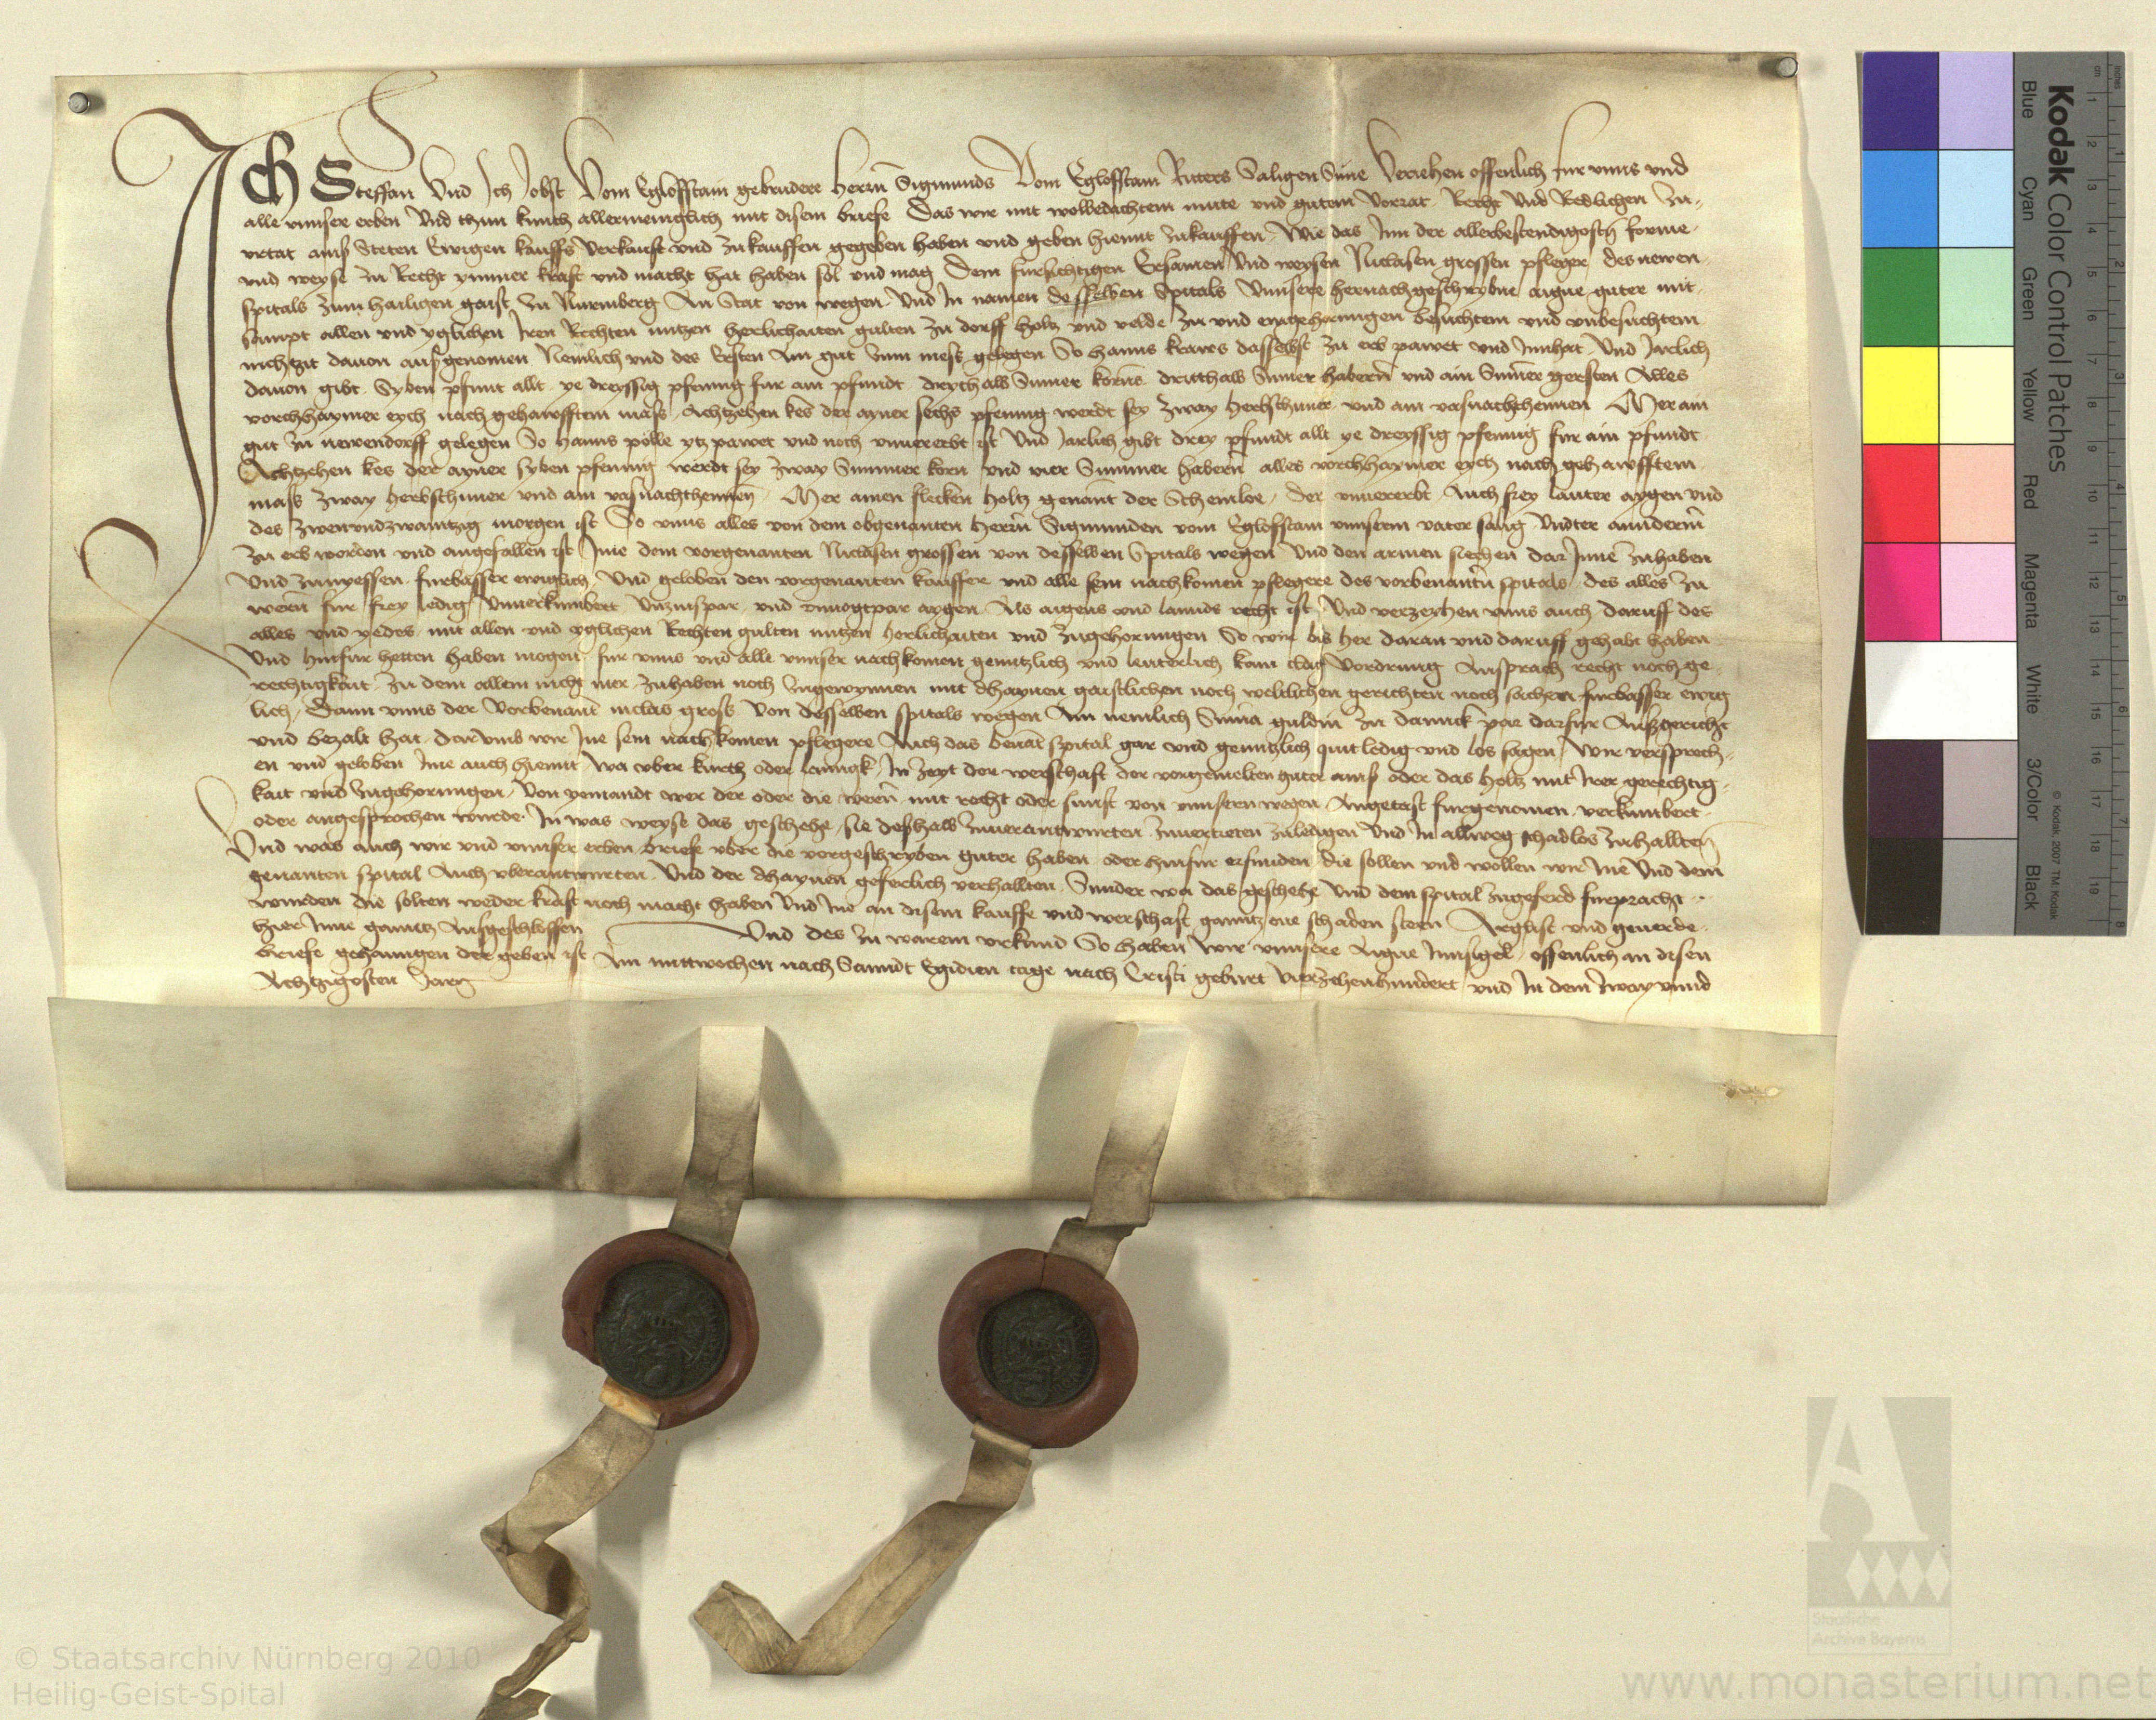 Ich Steffan Vnd Ich Jobst Vom Eglofstain gebrudere Herrn Sigmunds Vom Eglofstain Ritters Saligen Sune Veriehen offenlich fur vnns vnd
alle vnnsere erben Vnd thun kunth allermeniglich mit disem briefe Das wir mit wolbedachtem mute vnd gutem Vorrat Recht Vnd Redlichen Zu
vrtat auß Steten Ewigen kauffs Verkauft vnd Zukauffen gegeben haben vnd geben hiemit Zukauffen Wie das Inn der allerbestendigosten forme
vnd weyse Zu Recht ymmer kraft vnd macht hat haben sol vnd mag Dem fursichtigen Ersamen Vnd weysen Niclasen grossen pfleger des newen
spitals Zum hailigen gaist Zu Nuremberg An Stat von wegen Vnd In namen desselben Spitals Vnnsere hernachgeschrybne aigne guter mit
sampt allen vnd yglichen Iren Rechten nutzen herlichaiten gulten Zu dorff holtz vnd velde Zu vnd eingehorungen besuchtem vnd vnbesuchtem
nichtzit dauon außgenomen Nemlich vnd des Ersten Ain gut Zum nest gelegen So hanns kraws dasselbst Zu erb pawet vnd Innhat Vnd Jarlich
dauon gibt Syben pfunt allt ye dreyssig pfennig fur ain pfundt dreythalb Sumer korns dritthalb Sumer habern vnd ain Sumer gersten Alles
vorchhaymer eych nach gehawfftem mass Achtzehen kes der ayner sechs pfennig werdt sey Zway herbsthuner vnd ain vasnachthennen Mer ain
gut Zu newendorff gelegen So hanns pölle ytz pawet vnd noch vnuererbt ist Vnd Jarlich gibt drey pfundt allt ye dreyssig pfennig fur ain pfundt
Achtzehen kes der ayner syben pfennig werdt sey Zway Summer korn vnd vier Summer habern alles vorchhaymer eych nach gehawfftem
mass Zway herbsthuner vnd ain vasnachthennen Mer ainen flecken holtz genant der Schemloe der vnuererbt Auch frey lauter aygen vnd
des Zwenvndzwaintzig morgen ist So vnns alles von dem obgenanten herrn Sigmunden vom Eglofstain vnnserm vater salig Vndter annderm
Zu erb worden vnd angefallen ist Ime dem vorgenanten Niclasen grossen von desselben Spitals wegen Vnd den armen siechen dar Inne Zuhaben
Vnd Zunyessen furbasser ewiglich Vnd geloben den vorgenanten kauffer vnd alle sein nachkomen pflegere des vorbenanten spitals des alles Zu
wern fur frey ledig Vnuerkumbert Vnzinspar vnd vnuogtpar aygen Als aigens vnd lannds recht ist Vnd verzeyhen vnns auch daruff des
alles vnd yedes mit allen vnd yglichen Rechten gulten nutzen herlichaiten vnd Zugehorungen So wir bis her daran vnd daruff gehabt haben
Vnd hinfur hetten haben mogen fur vnns vnd alle vnnser nachkomen genntzlich vnd leuterlich kain clag Vordrung Ansprach recht noch ge
rechtigkait Zu dem allem nicht mer Zuhaben noch Zugewynnen mit dhaynen gaistlichen noch weltlichen gerichten noch sachen furbasser ewig
lich Dann vnns der Vorbenant niclas gross Von desselben spitals wegen Ain nemlich Suma guldin Zu dannck par darfur Außgericht
vnd bezalt hat darVmb wir Ine sein nachkomen pflegere Auch das benant spital gar vnd genntzlich quit ledig vnd los sagen Wir versprech
en vnd geloben Ime auch hiemit wa vber kurtz oder lanngk In Zeyt der werschaft der vorgemelten guter ains oder das holtz mit Irer gerechtig
kait vnd Zugehorungen Von yemandt wer der oder die wern mit recht oder sunst von vnnsern wegen Angetast furgenomen verkumbert
oder angesprochen wurde In was weyse das geschehe sie deßhalb Zuuerantwurten Zuuertreten Zuledigen Vnd In allweg schadlos Zuhallten
Vnd was auch wir vnd vnnser erben briefe vber die vorgeschryben guter haben oder hinfur erfunden die sollen vnd wollen wir Ine Vnd dem
genanten spital Auch vberantwurten Vnd der dhaynen geferlich verhallten Sunder wa das geschehe Vnd dem spital Zugeferd furpracht
wurden die solten weder kraft noch macht haben Vnd Ine an disem kauffe vnd werschaft gantz one schaden stean Arglist vnd geuerde
hier Inne ganntz Ausgeschlossen Vnd des Zu warem vrkund So haben wir vnnsere Aigne Innsigel offenlich an disen
briefe gehanngen der geben ist Am mittwochen nach Sannt Egidien tage nach Cristi geburt Vierzehenhundert vnd In dem Zwayvnnd
Achtzigosten Jare
Kodak Color Control Patches
Blue Cyan Green Yellow Red Magenta White 3/Color Black
© Kodak, 2007 TM: Kodak
cm 1 2 3 4 5 6 7 8 9 10 11 12 13 14 15 16 17 18 19
inches 1 2 3 4 5 6 7 8
Staatliche
Archive Bayerns
© Staatsarchiv Nürnberg 2010
Heilig-Geist-Spital
www.monasterium.net